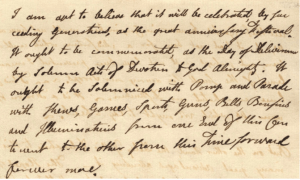 I am apt to believe that it will be celebrated, by suc
ceeding Generations, as the great anniversary Festival.
It ought to be commemorated, as the Day of Deliverance
by Solemn Acts of Devotion to God Almighty. It
ought to be Solemnized with Pomp and Parade
with Shews, Games, Sports, Guns, Bells, Bonfires
and Illuminations from one End of this Con
tinent to the other from this Time forward
forever more.